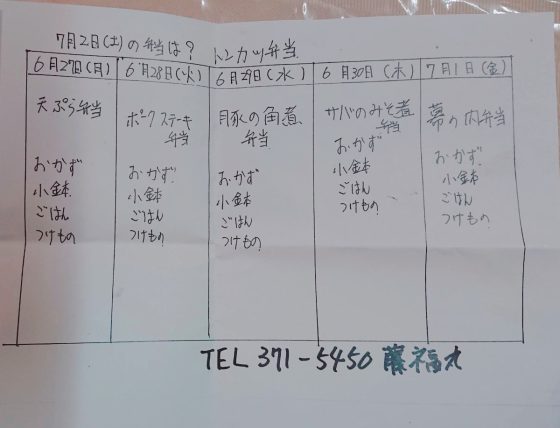 7月2日(土)の弁当は? トンカツ弁当
6月27日(月) 6月28日(火) 6月29日(水) 6月30日(木) 7月1日(金)
天ぷら弁当
おかず
小鉢
ごはん
つけもの
ポークステーキ
弁当
おかず
小鉢
ごはん
つけもの
豚の角煮
弁当
おかず
小鉢
ごはん
つけもの
サバのみそ煮
弁当
おかず
小鉢
ごはん
つけもの
幕の内弁当
おかず
小鉢
ごはん
つけもの
TEL 371-5450 藤福丸